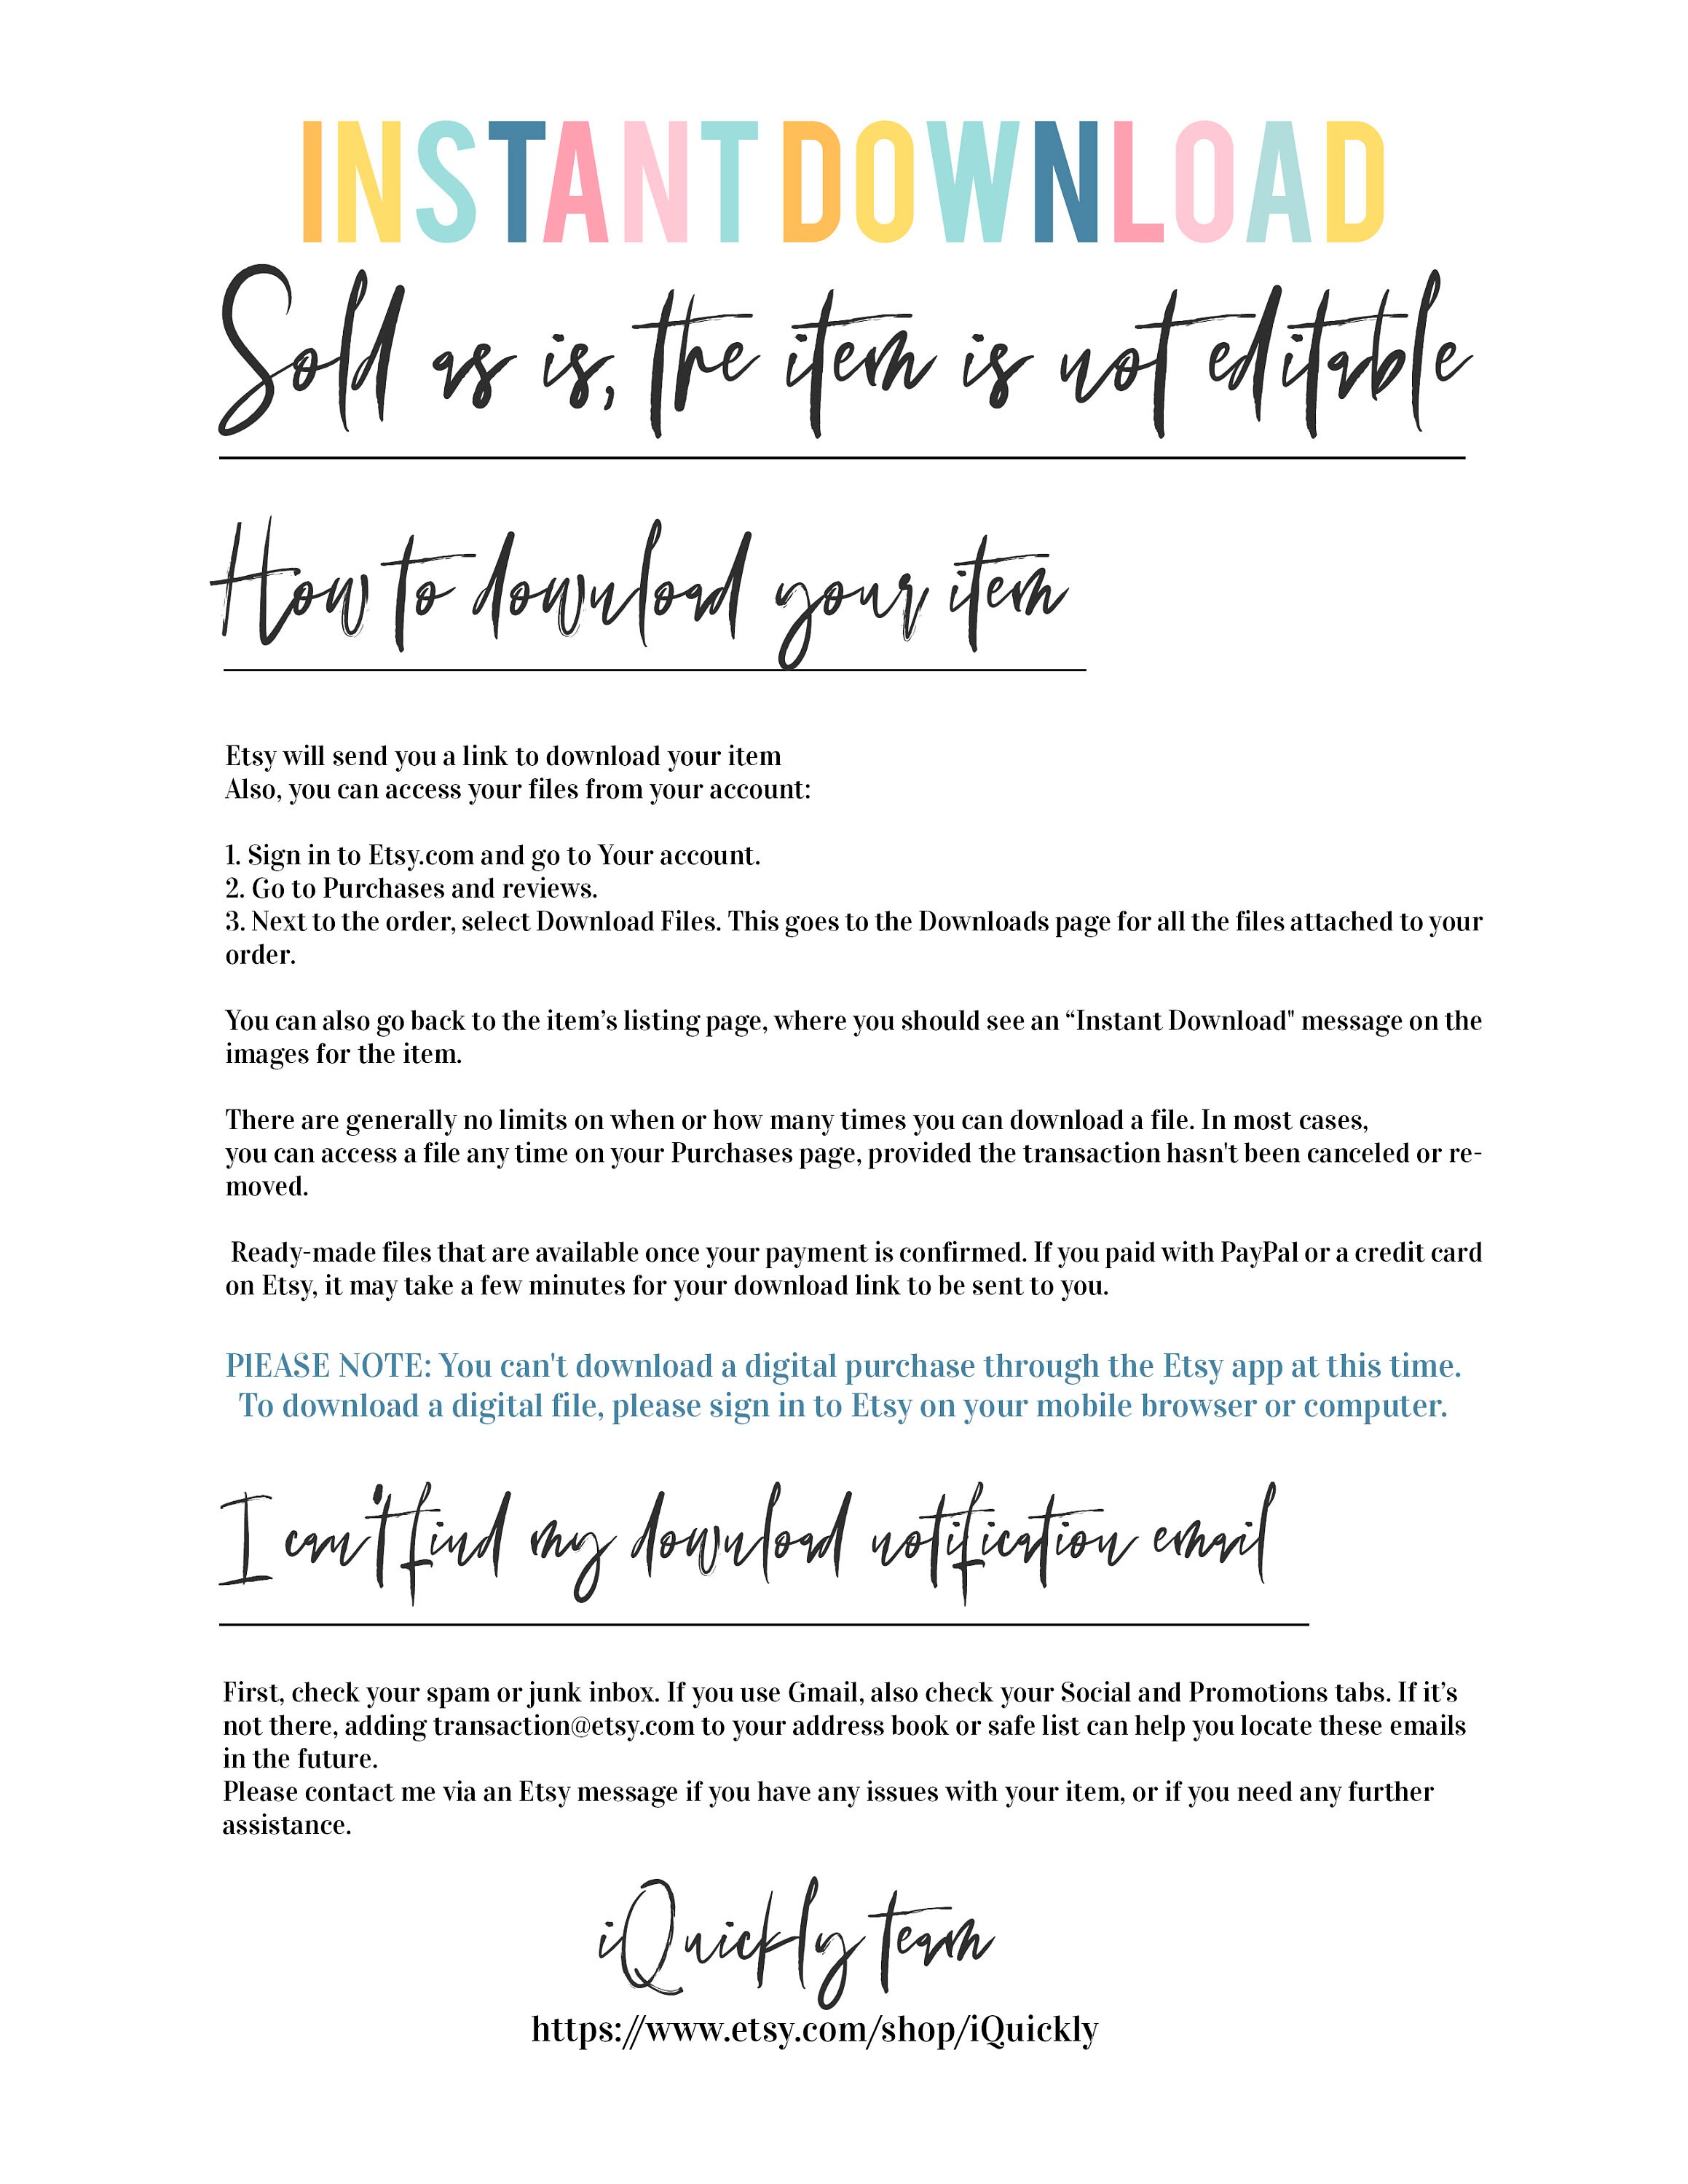 INSTANT DOWNLOAD
Sold as is, the item is not editable
How to download your item
Etsy will send you a link to download your item
Also, you can access your files from your account:
1. Sign in to Etsy.com and go to Your account.
2. Go to Purchases and reviews.
3. Next to the order, select Download Files. This goes to the Downloads page for all the files attached to your
order.
You can also go back to the item’s listing page, where you should see an “Instant Download" message on the
images for the item.
There are generally no limits on when or how many times you can download a file. In most cases,
you can access a file any time on your Purchases page, provided the transaction hasn't been canceled or re-
moved.
Ready-made files that are available once your payment is confirmed. If you paid with PayPal or a credit card
on Etsy, it may take a few minutes for your download link to be sent to you.
PlEASE NOTE: You can't download a digital purchase through the Etsy app at this time.
To download a digital file, please sign in to Etsy on your mobile browser or computer.
I can't find my download notification email
First, check your spam or junk inbox. If you use Gmail, also check your Social and Promotions tabs. If it’s
not there, adding transaction@etsy.com to your address book or safe list can help you locate these emails
in the future.
Please contact me via an Etsy message if you have any issues with your item, or if you need any further
assistance.
iQuickly team
https://www.etsy.com/shop/iQuickly